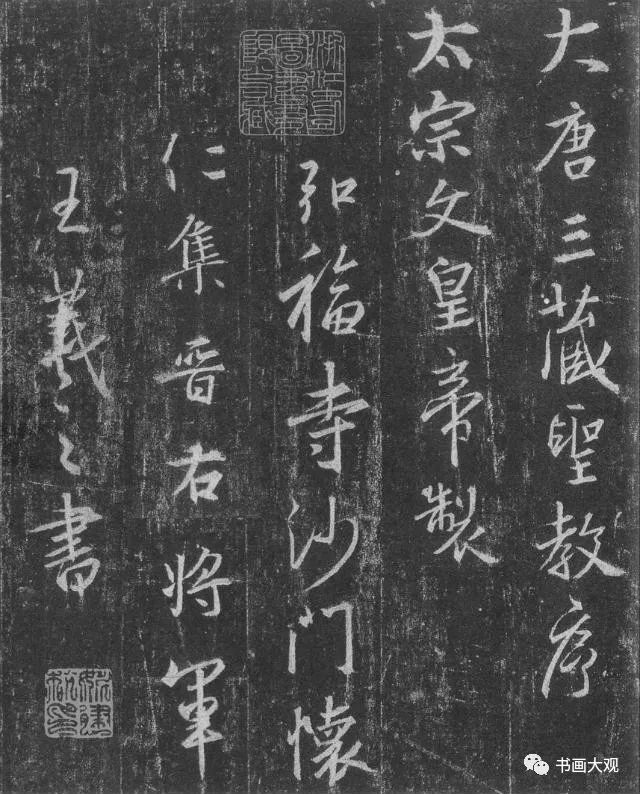 大唐三藏聖教序
太宗文皇帝製
弘福寺沙門懷
仁集晋右將軍
王羲之書
书画大观